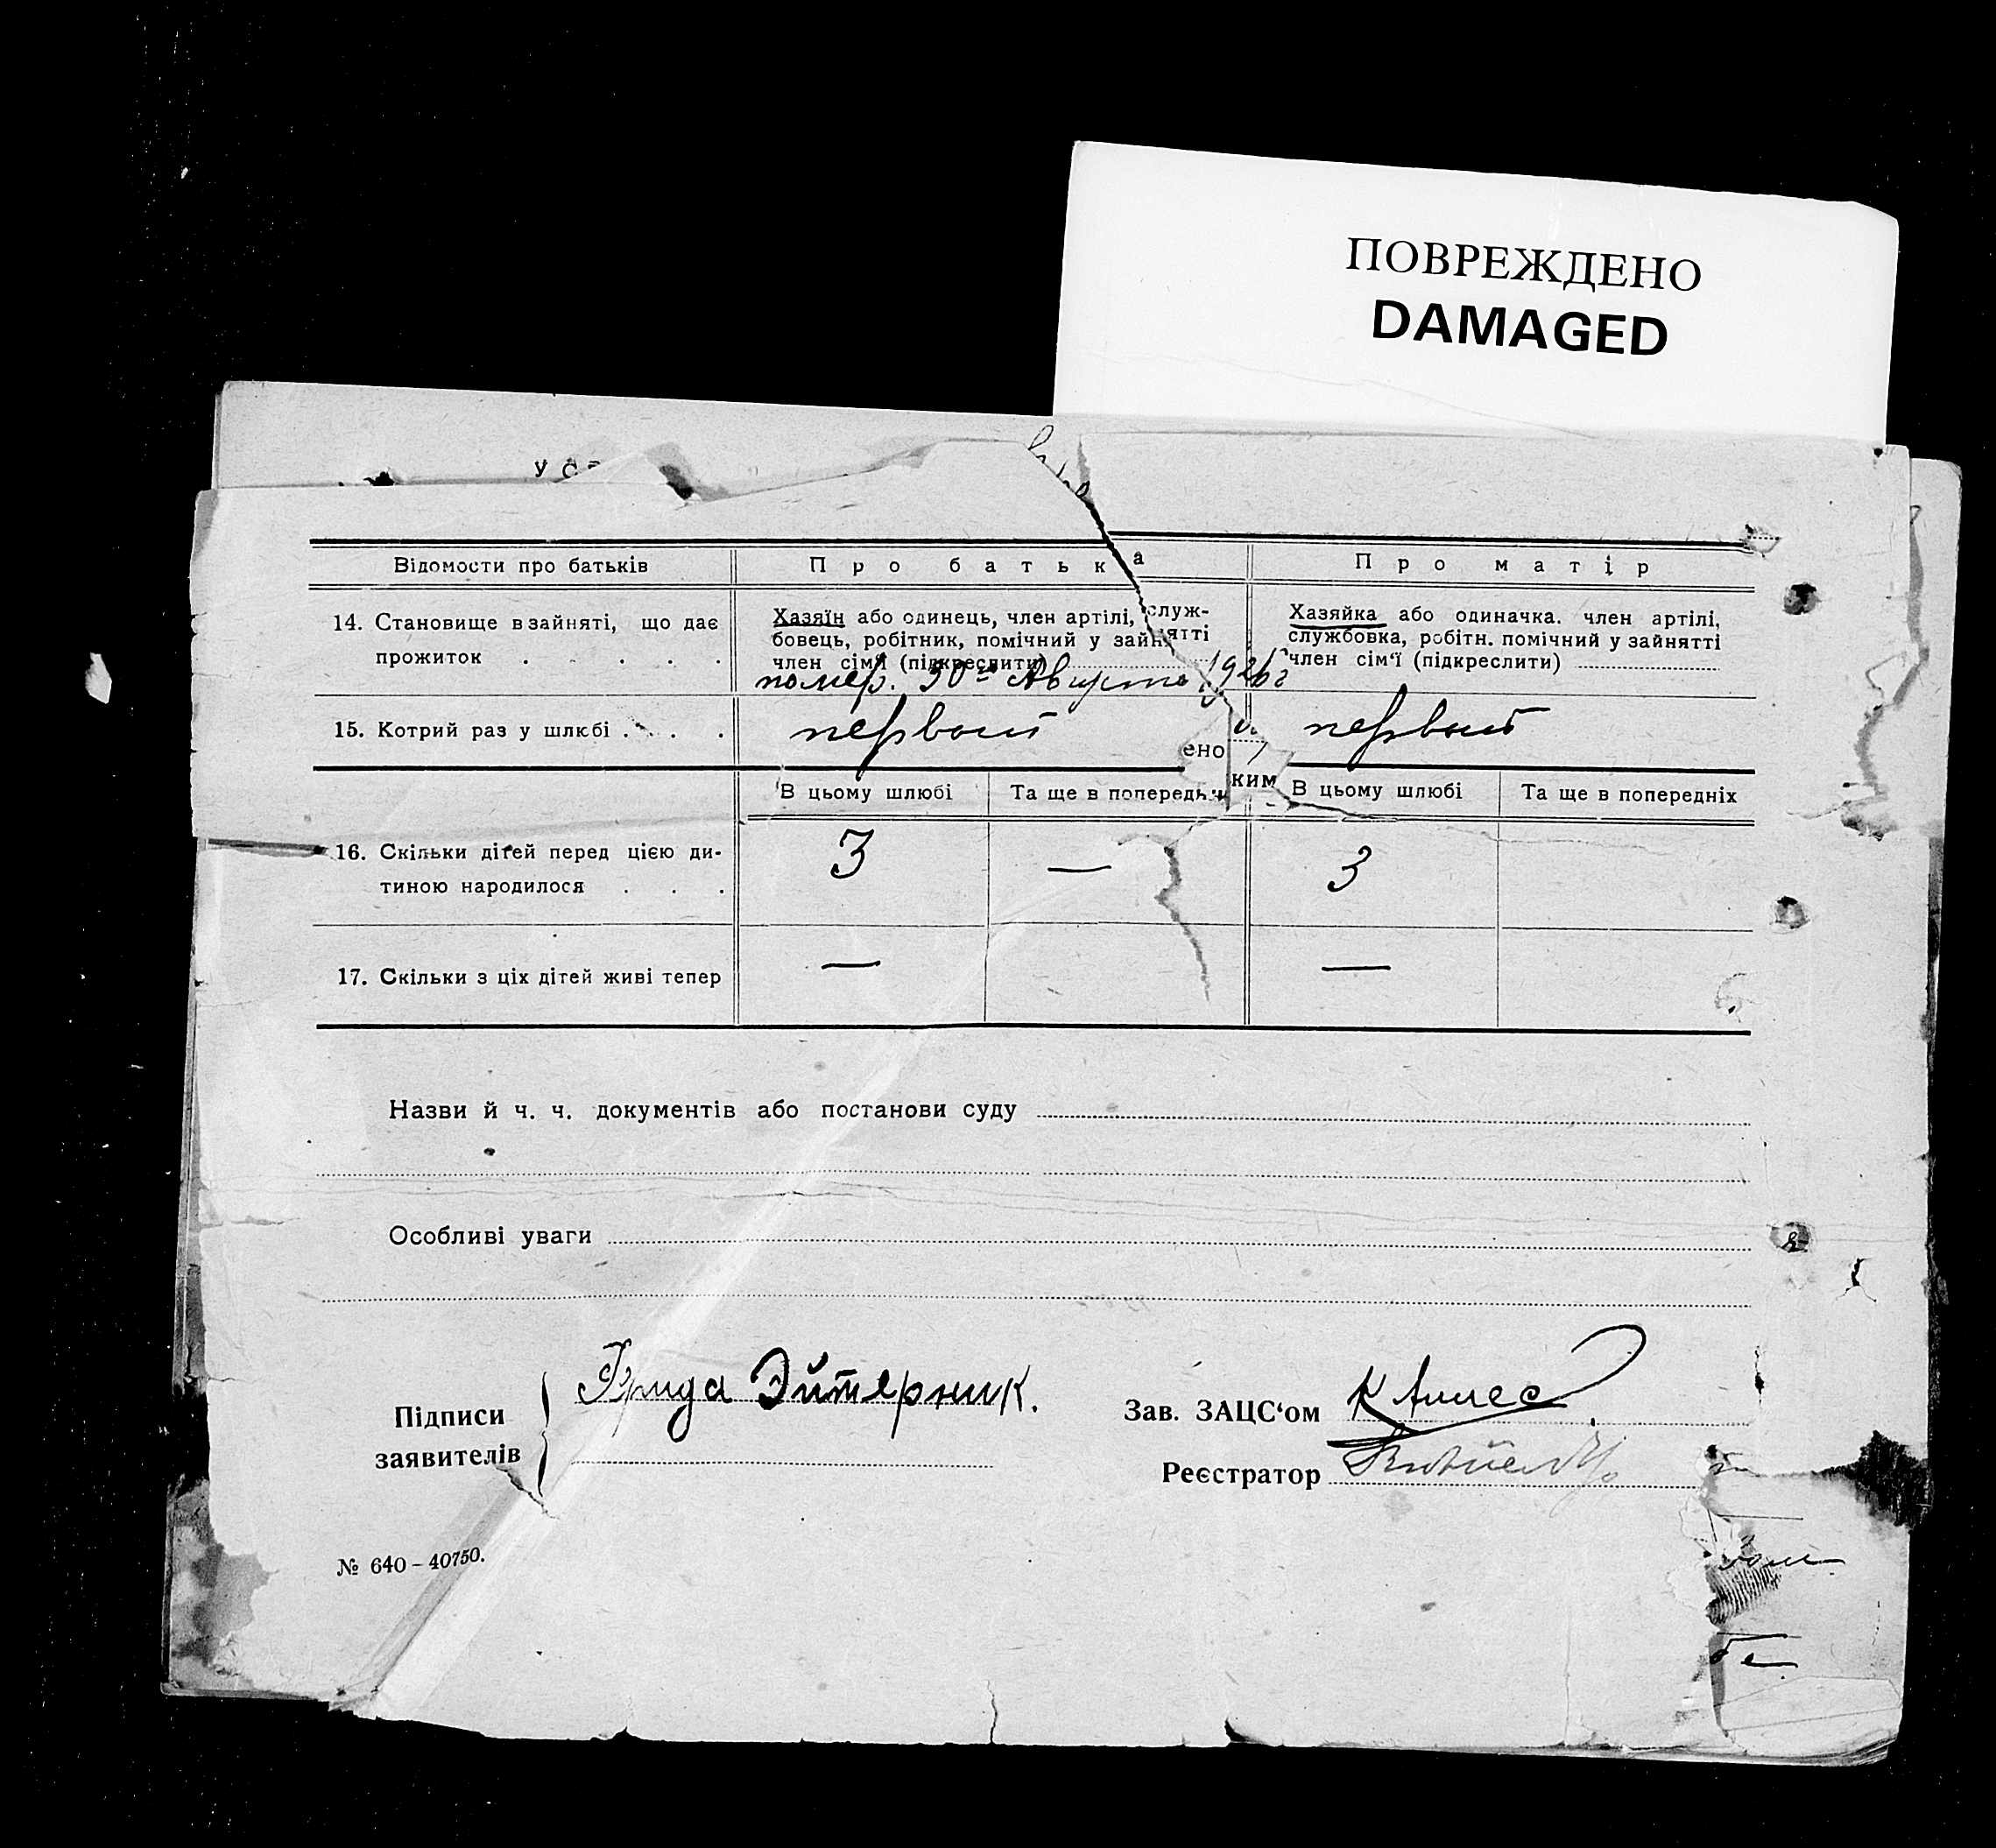 ПОВРЕЖДЕНО
DAMAGED
Відомости про батьків
Про батька
Про матір
14. Становище в зайняті, що дає
прожиток . . . . .
Хазяїн або одинець, член артілі, служ-
бовець, робітник, помічний у зайнятті
член сім'ї (підкреслити)
помер. 30го Августа 1926 г
Хазяйка або одиначка. член артілі,
службовка, робітн. помічний у зайнятті
член сім'ї (підкреслити)
15. Котрий раз у шлюбі . . . .
первый
первый
ено
ким
В цьому шлюбі
Та ще в попередніх
В цьому шлюбі
Та ще в попередніх
16. Скільки дітей перед цією ди-
тиною народилося . . .
3
—
3
17. Скільки з ціх дітей живі тепер
—
—
Назви й ч. ч. документів або постанови суду
Особливі уваги
Підписи
заявителів
Фрида Эйтерник.
Зав. ЗАЦС'ом
Реєстратор
№ 640-40750.